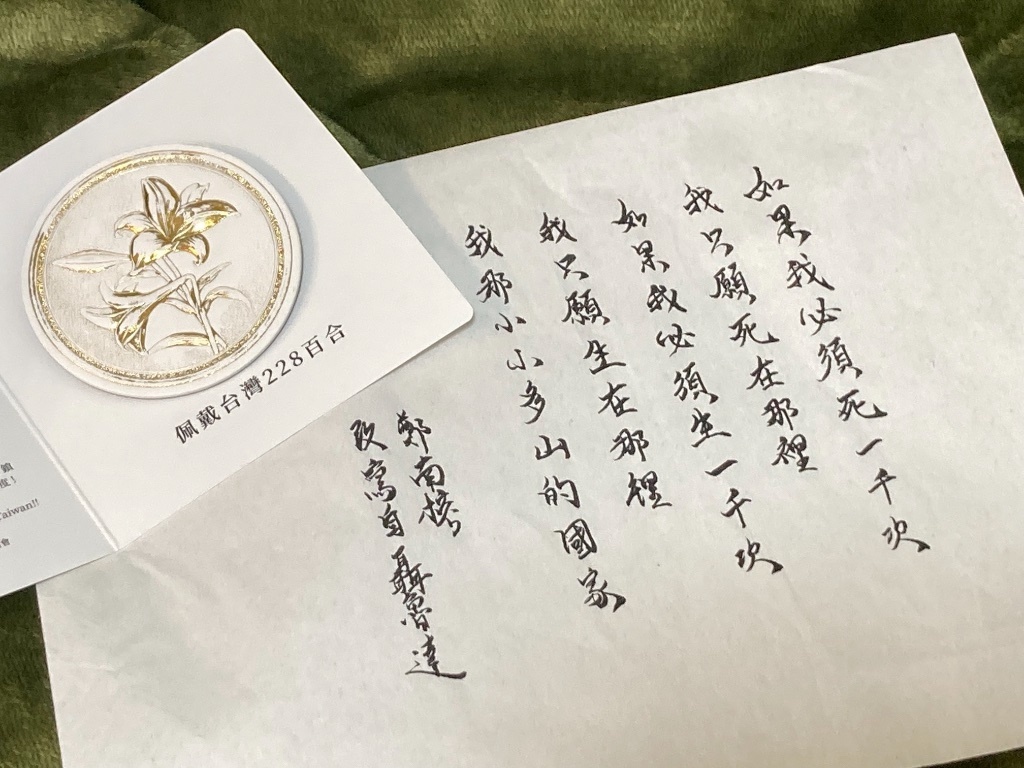 如果我必須死一千次
我只願死在那裡
如果我必須生一千次
我只願生在那裡
我那小小多山的國家
鄭南榕
改寫自聶魯達
佩戴台灣228百合
Taiwan!!